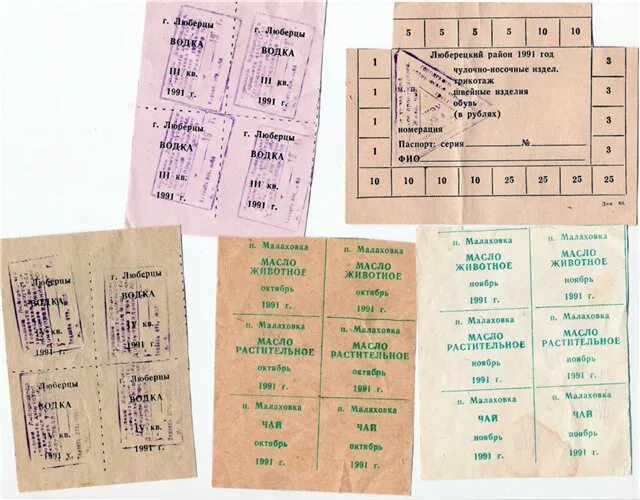 г. Люберцы
ВОДКА
III кв.
1991 г.
г. Люберцы
ВОДКА
III кв.
1991 г.
г. Люберцы
ВОДКА
III кв.
1991 г.
г. Люберцы
ВОДКА
III кв.
1991 г.
5 5 5 10 10
Люберецкий район 1991 год
чулочно-носочные издел.
трикотаж
швейные изделия
обувь
(в рублях)
м. п.
номерация
Паспорт: серия №
ФИО
1
1
1
3
3
3
10 10 10 10 25 25 25 25
Зак
г. Люберцы
ВОДКА
IУ кв.
1991 г.
г. Люберцы
ВОДКА
IУ кв.
1991 г.
г. Люберцы
ВОДКА
IУ кв.
1991 г.
г. Люберцы
ВОДКА
IУ кв.
1991 г.
п. Малаховка
МАСЛО
ЖИВОТНОЕ
октябрь
1991 г.
п. Малаховка
МАСЛО
ЖИВОТНОЕ
октябрь
1991 г.
п. Малаховка
МАСЛО
РАСТИТЕЛЬНОЕ
октябрь
1991 г.
п. Малаховка
МАСЛО
РАСТИТЕЛЬНОЕ
октябрь
1991 г.
п. Малаховка
ЧАЙ
октябрь
1991 г.
п. Малаховка
ЧАЙ
октябрь
1991 г.
п. Малаховка
МАСЛО
ЖИВОТНОЕ
ноябрь
1991 г.
п. Малаховка
МАСЛО
ЖИВОТНОЕ
ноябрь
1991 г.
п. Малаховка
МАСЛО
РАСТИТЕЛЬНОЕ
ноябрь
1991 г.
п. Малаховка
МАСЛО
РАСТИТЕЛЬНОЕ
ноябрь
1991 г.
п. Малаховка
ЧАЙ
ноябрь
1991 г.
п. Малаховка
ЧАЙ
ноябрь
1991 г.